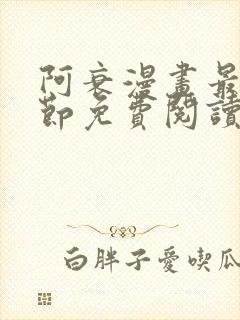 阿衰漫畫最
節免費閱讀
白胖子愛喫瓜